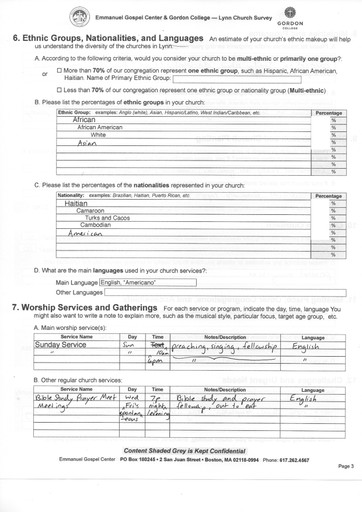 Emmanuel Gospel Center & Gordon College — Lynn Church Survey
GORDON
COLLEGE
6. Ethnic Groups, Nationalities, and Languages An estimate of your church's ethnic makeup will help
us understand the diversity of the churches in Lynn
A. According to the following criteria, would you consider your church to be multi-ethnic or primarily one group?:
☐ More than 70% of our congregation represent one ethnic group, such as Hispanic, African American,
or Haitian: Name of Primary Ethnic Group:
☐ Less than 70% of our congregation represent one ethnic group or nationality group (Multi-ethnic)
B. Please list the percentages of ethnic groups in your church:
Ethnic Group: examples: Anglo (white), Asian, Hispanic/Latino, West Indian/Caribbean, etc. Percentage
African %
African American %
White %
Asian %
%
%
%
C. Please list the percentages of the nationalities represented in your church:
Nationality: examples: Brazilian, Haitian, Puerto Rican, etc. Percentage
Haitian %
Camaroon %
Turks and Cacos %
Cambodian %
American %
%
%
D. What are the main languages used in your church services?:
Main Language English, "Americano"
Other Languages
7. Worship Services and Gatherings For each service or program, indicate the day, time, language You
might also want to write a note to explain more, such as the musical style, particular focus, target age group, etc.
A. Main worship service(s):
Service Name Day Time Notes/Description Language
Sunday Service Sun 10am preaching, singing, fellowship English
" " 6pm " "
B. Other regular church services:
Service Name Day Time Notes/Description Language
Bible Study Prayer Meet Wed 7p Bible study and prayer English
Meetings Fri's nights fellowship, out to eat "
Content Shaded Grey is Kept Confidential
Emmanuel Gospel Center PO Box 180245 • 2 San Juan Street • Boston, MA 02118-0994 Phone: 617.262.4567
Page 3